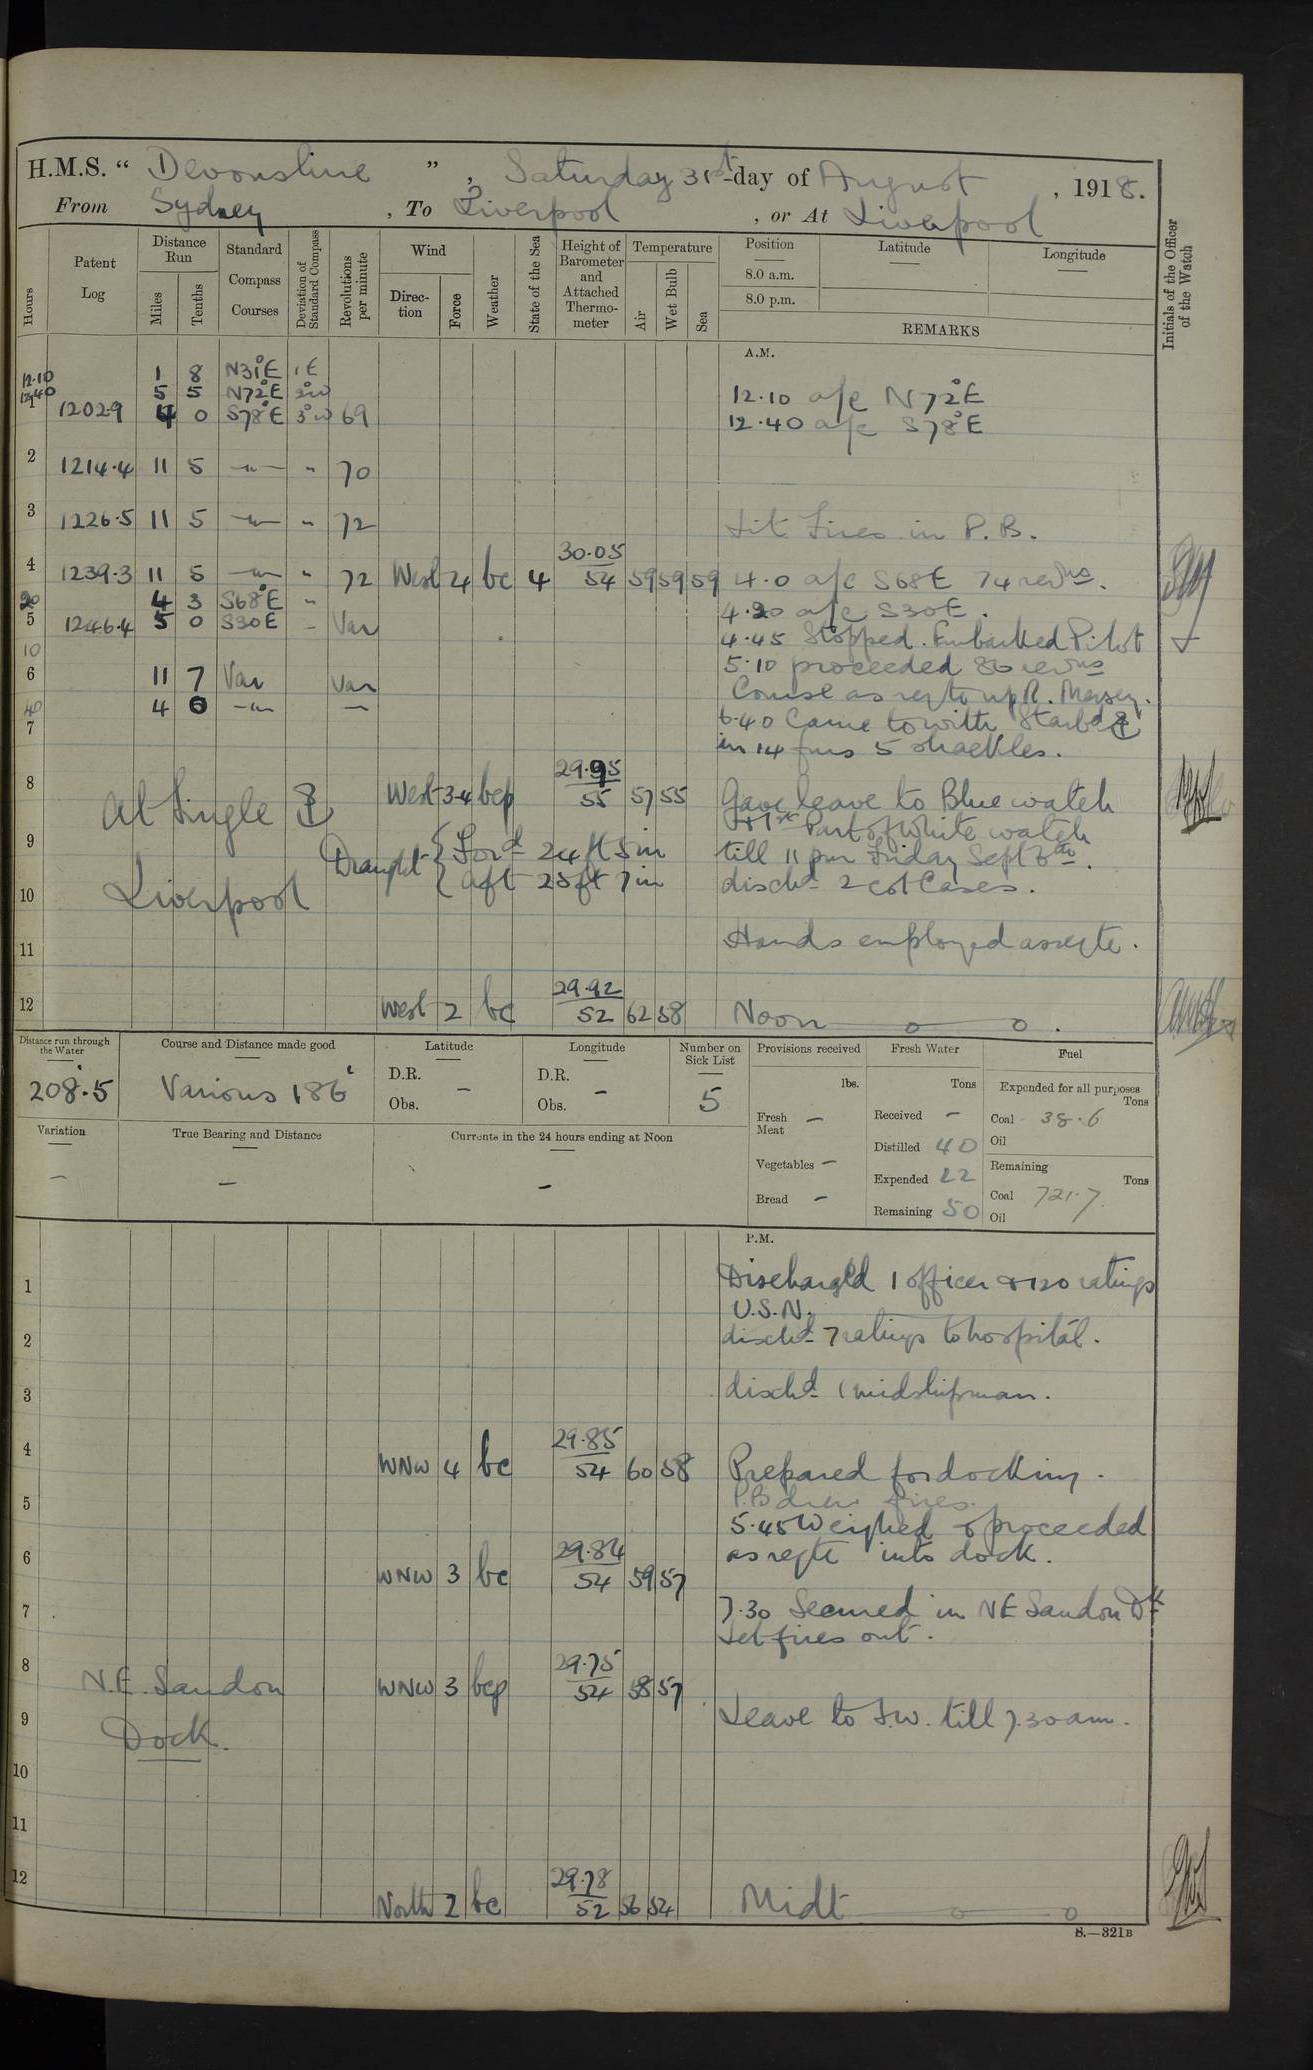 H.M.S. “ Devonshire ” , Saturday 31st day of August , 1918.
From Sydney , To Liverpool , or At Liverpool
Hours
Patent Log
Distance Run
Miles
Tenths
Standard Compass Courses
Deviation of Standard Compass
Revolutions per minute
Wind
Direction
Force
Weather
State of the Sea
Height of Barometer and Attached Thermometer
Temperature
Air
Wet Bulb
Sea
Position
8.0 a.m.
8.0 p.m.
Latitude
Longitude
REMARKS
Initials of the Officer of the Watch
A.M.
12.10 1 8 N31°E 1E
12.40 5 5 N72°E 2°W 12.10 a/c N72°E
1 1202.9 4 0 S78°E 3°W 69 12.40 a/c S78°E
2 1214.4 11 5 —"— " 70
3 1226.5 11 5 —"— " 72 Lit Fires in P.B.
4 1239.3 11 5 —"— " 72 West 4 bc 4 30.05 54 59 59 59 4.0 a/c S68E 74 revns.
20 4 3 S68°E " 4.20 a/c S30E.
5 1246.4 5 0 S30E - Var 4.45 Stopped. Embarked Pilot
10 5.10 proceeded 86 revns
6 11 7 Var Var Course as reqte up R. Mersey.
40 4 0 —"— — 6.40 Came to with Starbd ⚓
7 in 14 fms 5 shackles.
8 West 3-4 bcp 29.95 55 57 55 Gave leave to Blue watch
At Single ⚓ & 1st Part of White watch
9 Draught { Ford 24 ft 5 in till 11 pm Friday Sept 6th.
Liverpool { Aft 25 ft 7 in dischd 2 cot Cases.
10
11 Hands employed as reqte.
12 West 2 bc 29.92 52 62 58 Noon
Distance run through the Water
208.5
Course and Distance made good
Various 186'
Latitude
D.R. –
Obs.
Longitude
D.R. –
Obs.
Number on Sick List
5
Provisions received
lbs.
Fresh Meat –
Vegetables –
Bread –
Fresh Water
Tons
Received –
Distilled 40
Expended 22
Remaining 50
Fuel
Expended for all purposes
Tons
Coal 38.6
Oil
Remaining
Tons
Coal 721.7
Oil
Variation
–
True Bearing and Distance
–
Currents in the 24 hours ending at Noon
–
P.M.
1 Discharged 1 officer & 120 ratings
U.S.N.
2 dischd 7 ratings to hospital.
3 dischd 1 midshipman.
4 WNW 4 bc 29.85 54 60 58 Prepared for docking.
5 P.B drew fires.
5.45 Weighed & proceeded
6 WNW 3 bc 29.84 54 59 57 as reqte into dock.
7 7.30 Secured in NE Sandon Dk
Let fires out.
8 WNW 3 bcp 29.75 54 58 57
N.E. Sandon
9 Leave to S.W. till 7.30 am.
Dock.
10
11
12 North 2 bc 29.78 52 56 54 Midt
S.—321B